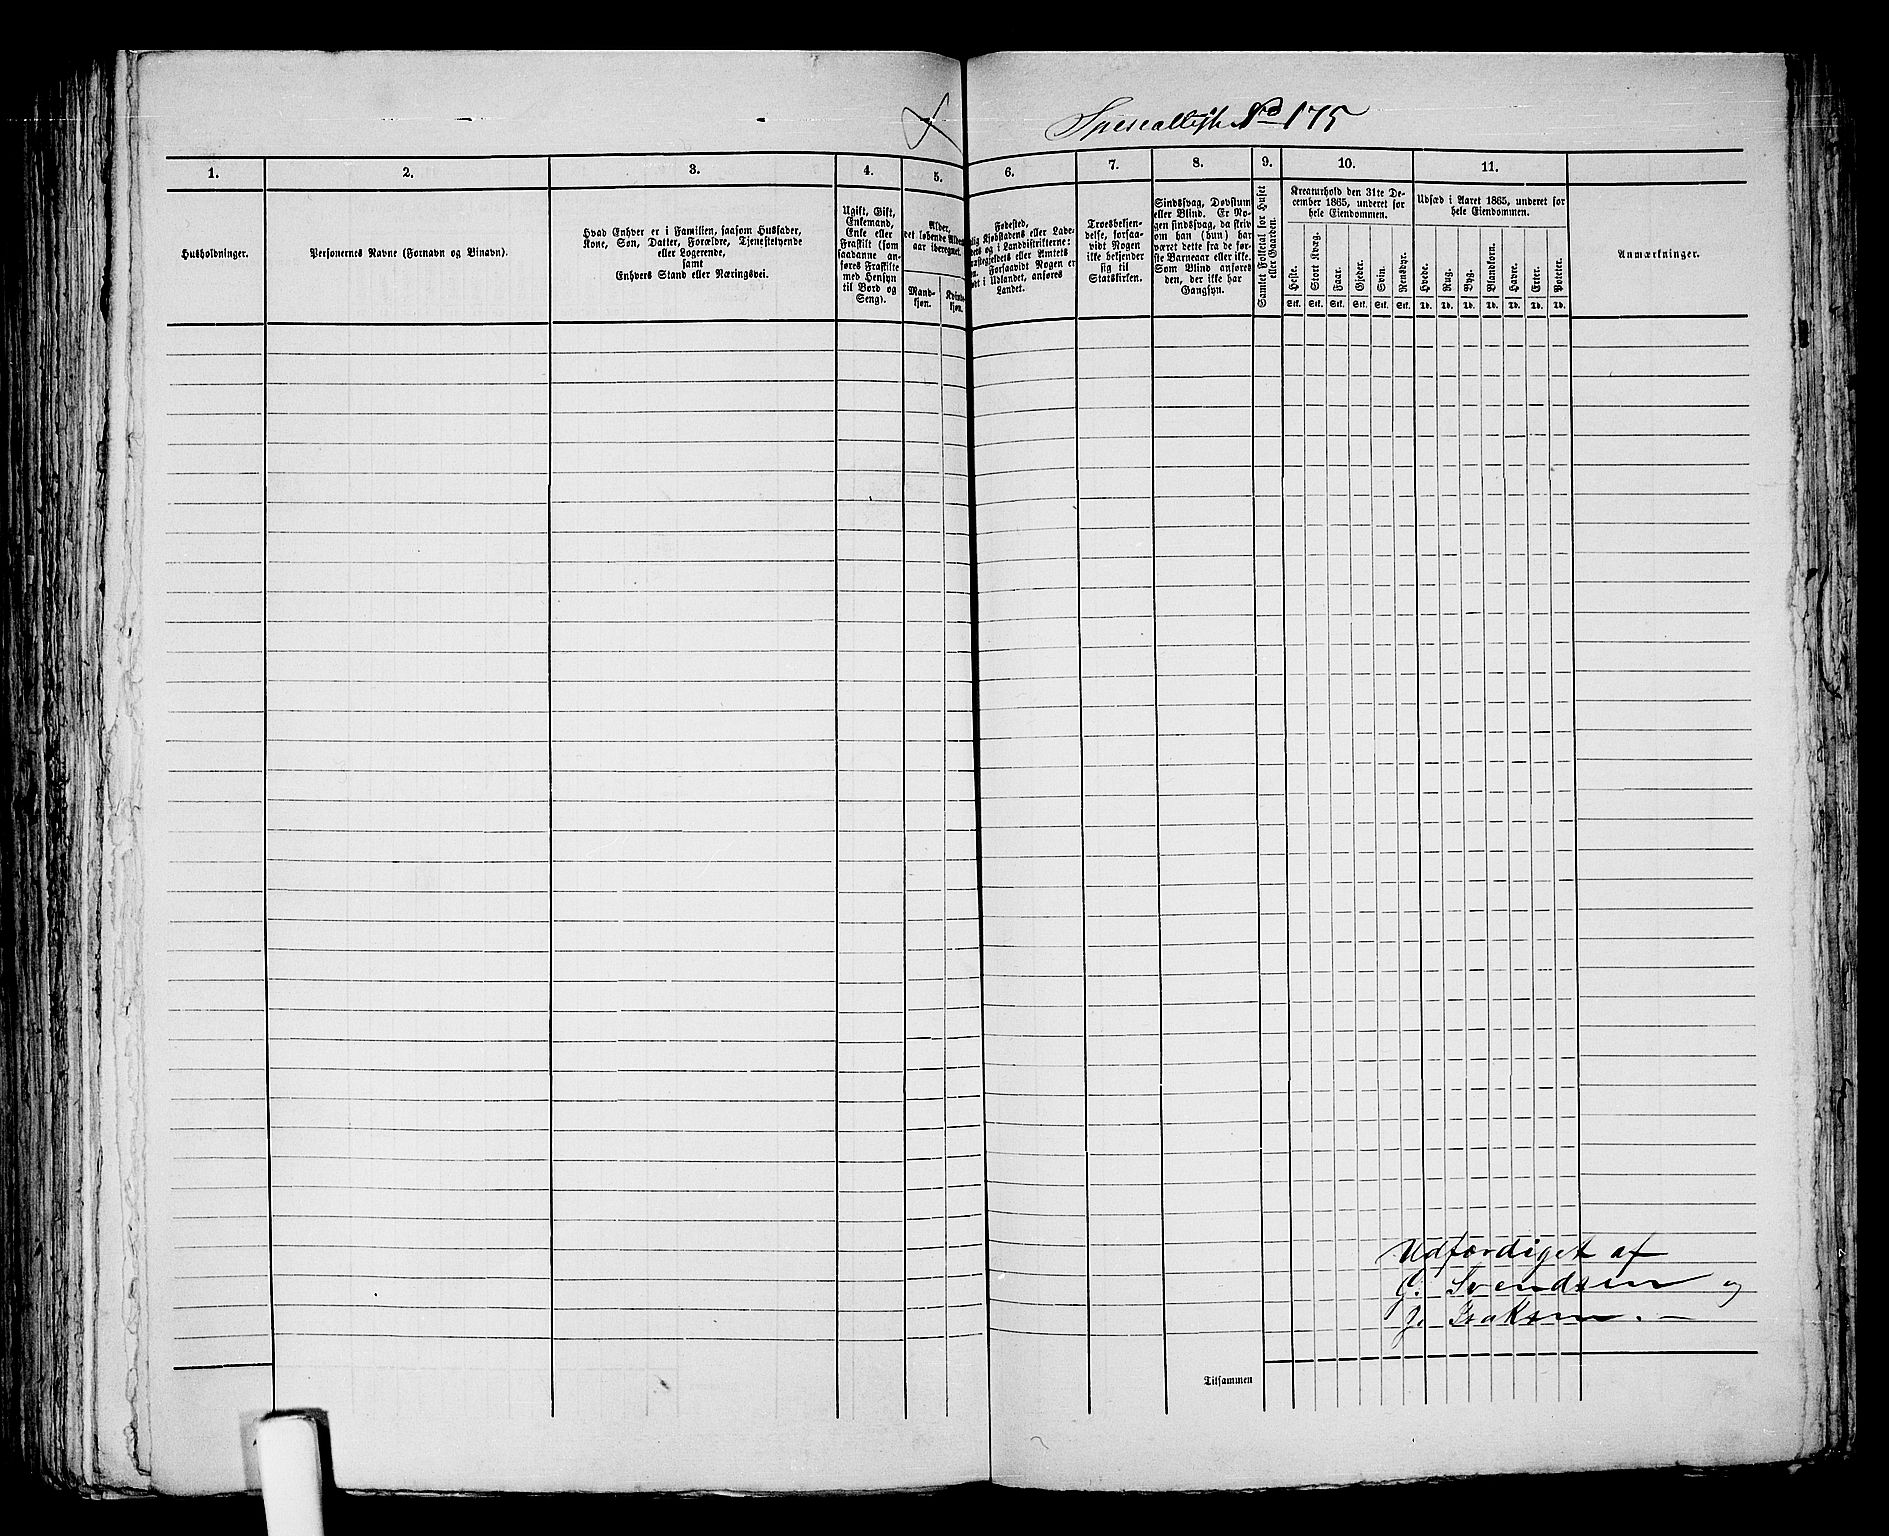 Specialliste No 175
1.
2.
3.
4.
5.
6.
7.
8.
9.
10.
11.
Husholdninger.
Personernes Navne (Fornavn og Binavn).
Hvad Enhver er i Familien, saasom Husfader,
Kone, Søn, Datter, Forældre, Tjenestetyende
eller Logerende,
samt
Enhvers Stand eller Næringsvei.
Ugift, Gift,
Enkemand,
Enke eller
Fraskilt (som
saadanne an-
føres Fraskilte
med Hensyn
til Bord og
Seng).
Alder,
det løbende Alders-
aar iberegnet.
Mand-
kjøn.
Kvinde-
kjøn.
Fødested,
Kjøbstadens eller Lade-
og i Landdistrikterne:
eller Amtets
Forsaavidt Nogen er
i Udlandet, anføres
Landet.
Troesbekjen-
delse, forsaa-
vidt Nogen
ikke bekjender
sig til
Statskirken.
Sindssvag, Døvstum
eller Blind. Er No-
gen sindssvag, da skriv
om han (hun) har
været dette fra de før-
ste Barneaar eller ikke.
Som Blind anføres
den, der ikke har
Gangsyn.
Samlet Folketal for Huset
eller Gaarden.
Kreaturhold den 31te De-
cember 1865, underet for
hele Eiendommen.
Heste.
Stort Kvæg.
Faar.
Gjeder.
Sviin.
Rensdyr.
Stk. Stk. Stk. Stk. Stk. Stk.
Udsæd i Aaret 1865, underet for
hele Eiendommen.
Hvede.
Rug.
Byg.
Blandkorn.
Havre.
Erter.
Poteter.
Td. Td. Td. Td. Td. Td. Td.
Anmærkninger.
Udfærdiget af
G. Svendsen og
J. Isaksen. —
Tilsammen